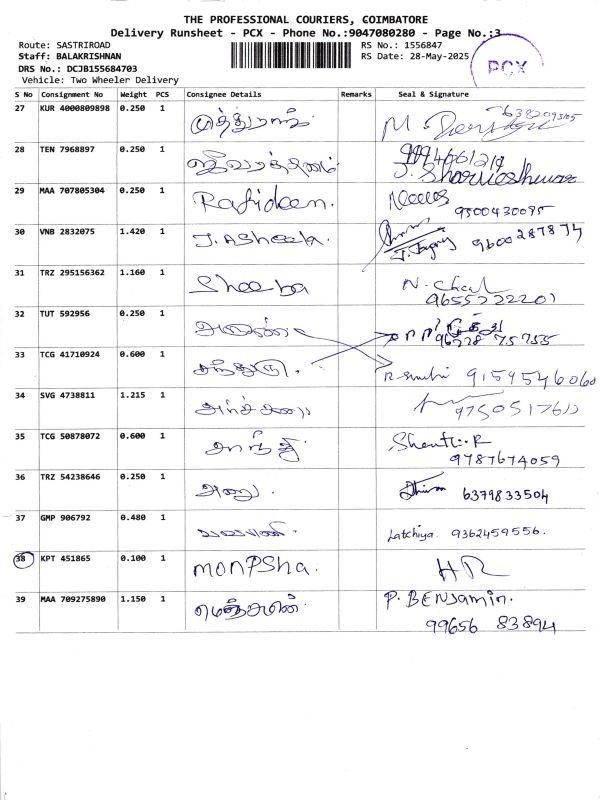 THE PROFESSIONAL COURIERS, COIMBATORE
Delivery Runsheet - PCX - Phone No.:9047080280 - Page No.:3
Route: SASTRIROAD
RS No.: 1556847
Staff: BALAKRISHNAN
RS Date: 28-May-2025
DRS No.: DCJB155684703
PCX
Vehicle: Two Wheeler Delivery
S No Consignment No Weight PCS Consignee Details Remarks Seal & Signature
27 KUR 4000809898 0.250 1 முத்துராஜ்
28 TEN 7968897 0.250 1
J. Sharvieshwar
29 MAA 707805304 0.250 1 Rafideen.
9500430095
30 VNB 2832075 1.420 1 J. Asheela. 9600287874
31 TRZ 295156362 1.160 1 Sheeba N.
9655222201
32 TUT 592956 0.250 1
33 TCG 41710924 0.600 1 சந்துரு. 9159546060
34 SVG 4738811 1.215 1 அர்ச்சனா
35 TCG 50878072 0.600 1 Shanthi.R
9787674059
36 TRZ 54238646 0.250 1 அனு. 6379833504
37 GMP 906792 0.480 1 Latchiya. 9362459556.
38 KPT 451865 0.100 1 monPSha. HR
39 MAA 709275890 1.150 1 பெஞ்சமின் P. BENJamin.
99656 83894